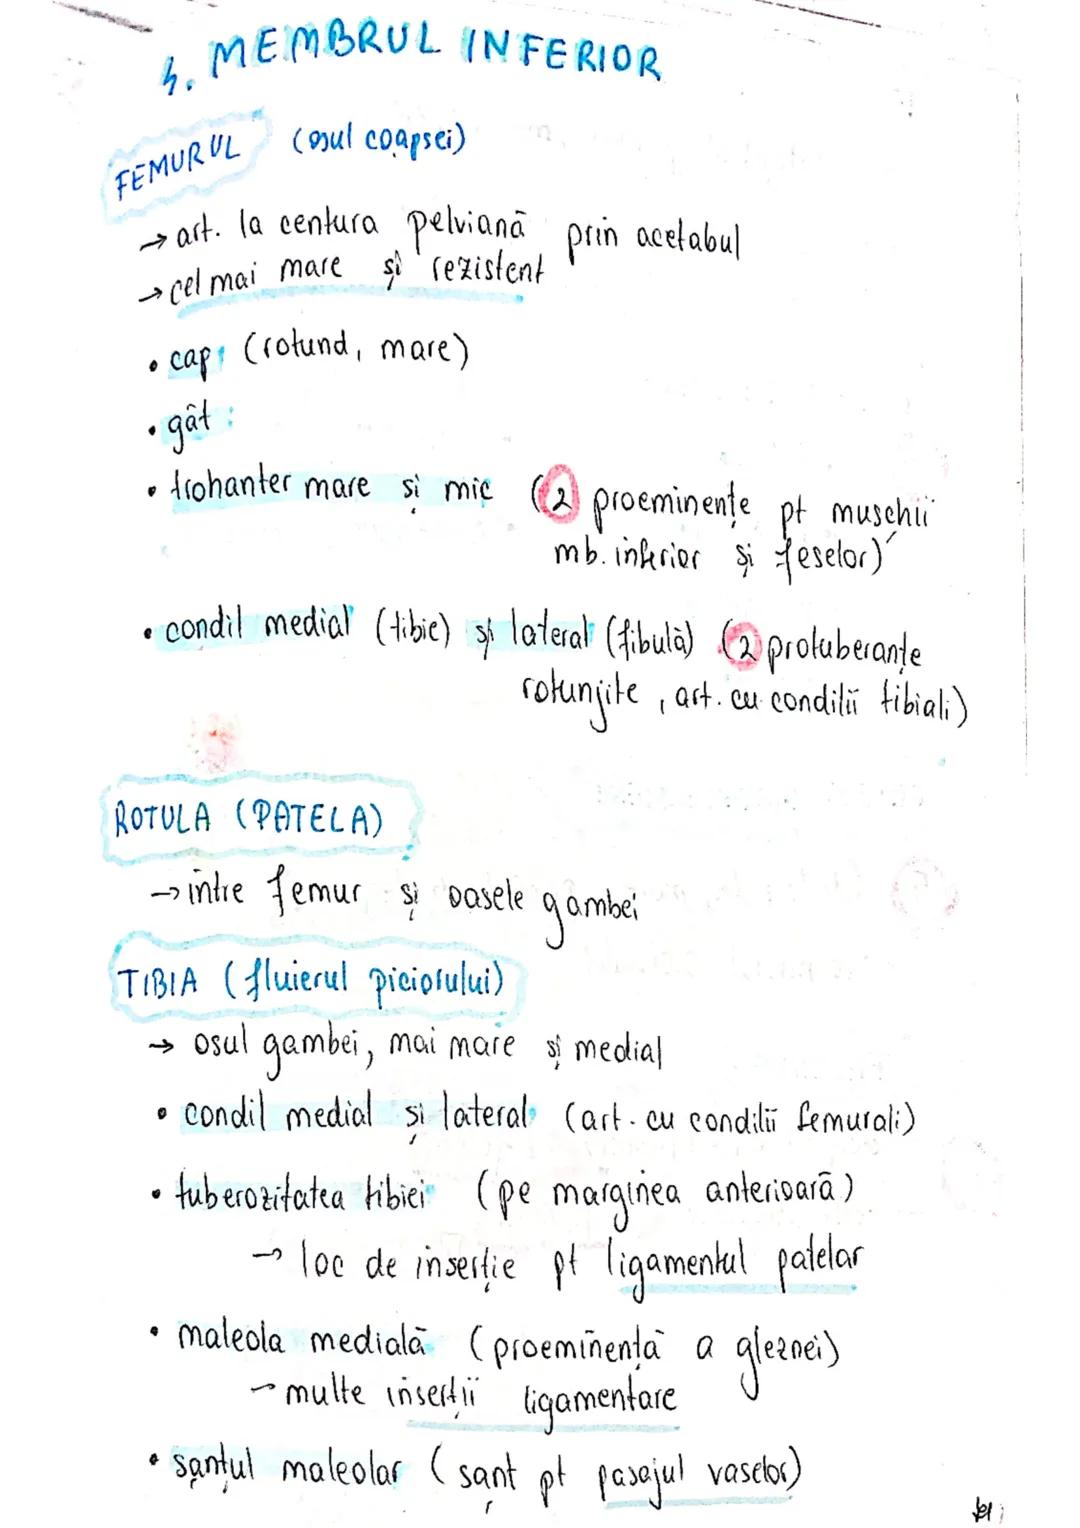 4. MEMBRUL INFERIOR
FEMURUL (osul coapsei)
→ art. la centura pelviană prin acetabul
→ cel mai mare și rezistent
• cap: (rotund, mare)
• gât:
• trohanter mare și mic (2 proeminențe pt mușchii
mb. inferior și feselor)
• condil medial (tibie) și lateral (fibulă) (2 protuberanțe
rotunjite, art. cu condilii tibiali)
ROTULA (PATELA)
→ intre femur și oasele gambei
TIBIA (fluierul piciorului)
→ osul gambei, mai mare și medial
• condil medial și lateral (art. cu condilii femurali)
• tuberozitatea tibiei (pe marginea anterioară)
→ loc de inserție pt ligamentul patelar
• maleola medială (proeminență a gleznei)
→ multe inserții ligamentare
• șanțul maleolar (șanț pt pasajul vaselor)